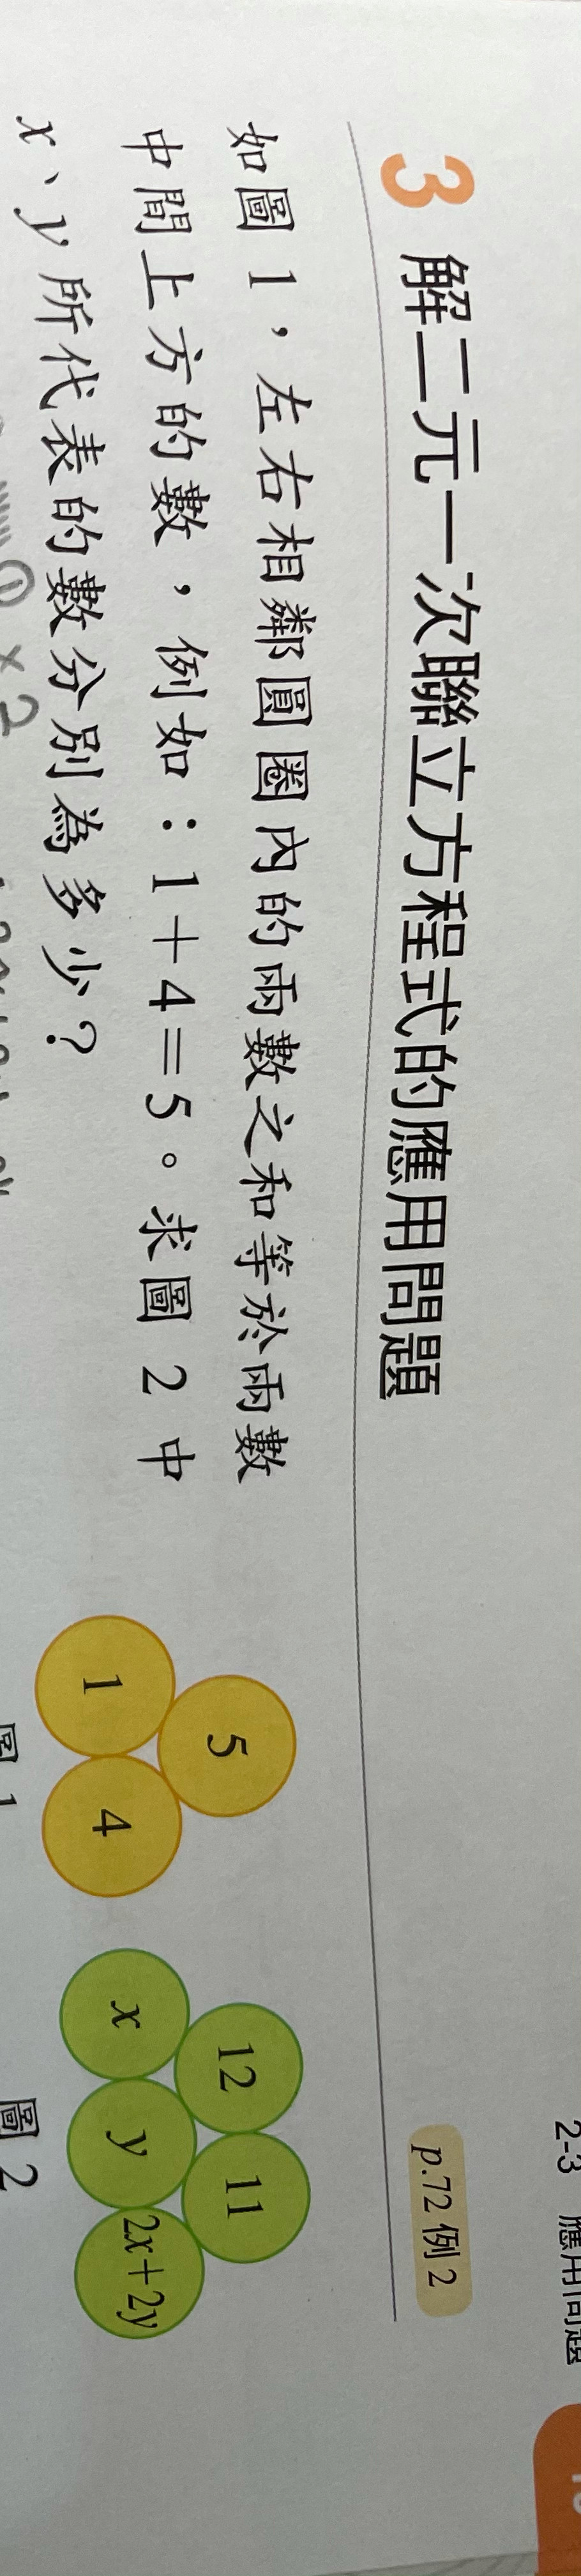 2-3 應用問題
3 解二元一次聯立方程式的應用問題
p.72 例 2
如圖 1，左右相鄰圓圈內的兩數之和等於兩數
中間上方的數，例如：1＋4＝5。求圖 2 中
x、y 所代表的數分別為多少？
5
1 4
圖 1
12 11
x y 2x+2y
圖 2
① × 2